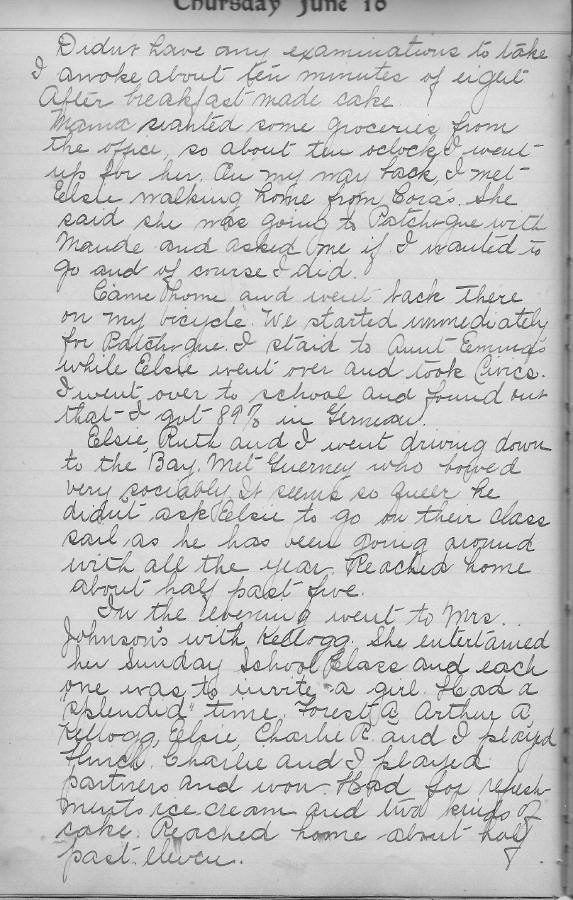 Thursday June 16
Didn't have any examinations to take
I awoke about ten minutes of eight
After breakfast made cake.
Mama wanted some groceries from
the office, so about ten oclock I went
up for her. On my way back, I met
Elsie walking home from Cora's. She
said she was going to Patchogue with
Maude and asked me if I wanted to
go and of course I did.
Came home and went back there
on my bicycle. We started immediately
for Patchogue. I staid to Aunt Emma's
while Elsie went over and took Civics.
I went over to school and found out
that I got 89% in German.
Elsie, Ruth and I went driving down
to the Bay. Met Guerney who bowed
very sociably. It seems so queer he
didn't ask Elsie to go on their class
sail as he has been going around
with all the year. Reached home
about half past five.
In the evening went to Mrs.
Johnson's with Kellogg. She entertained
her Sunday School Class and each
one was to invite a girl. Had a
"splendid" time. Forest A. Arthur A,
Kellogg, Elsie, Charlie R. and I played
flinch. Charlie and I played
partners and won. Had for refresh-
ments ice cream and two kinds of
cake. Reached home about half
past eleven.